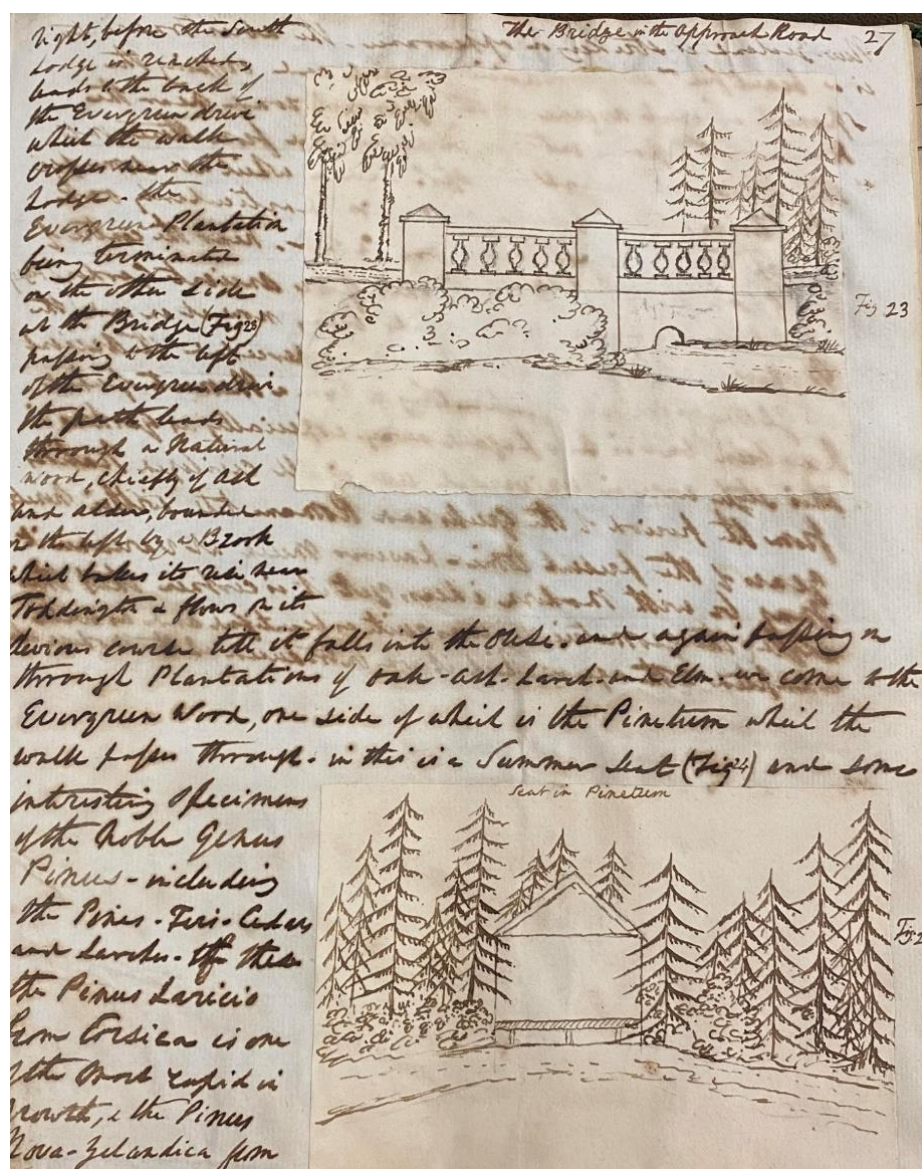 The Bridge in the Approach Road 27
right, before the South
Lodge is reached,
leads to the back of
the Evergreen drive
which the walk
crosses near the
Lodge - the
Evergreen Plantation
being terminated
on the other side
at the Bridge (Fig 23)
passing to the left
of the Evergreen drive
the path leads
through a Natural
wood, chiefly of Ash
and alder, bounded
on the left by a Brook
which takes its rise near
Toddington & flows on its
devious course till it falls into the Ouse. and again passing on
through Plantations of oak - ash - Larch - and Elm - we come to the
Evergreen Wood, one side of which is the Pinetum which the
walk passes through - in this is a Summer Seat (Fig 24) and some
interesting Specimens
of the Noble Genus
Pinus - including
the Pines - Firs - Cedars
and Larches - Of these
the Pinus Laricio
from Corsica is one
of the most rapid in
growth, & the Pinus
Nova-Zelandica from
Fig 23
Seat in Pinetum
Fig 2